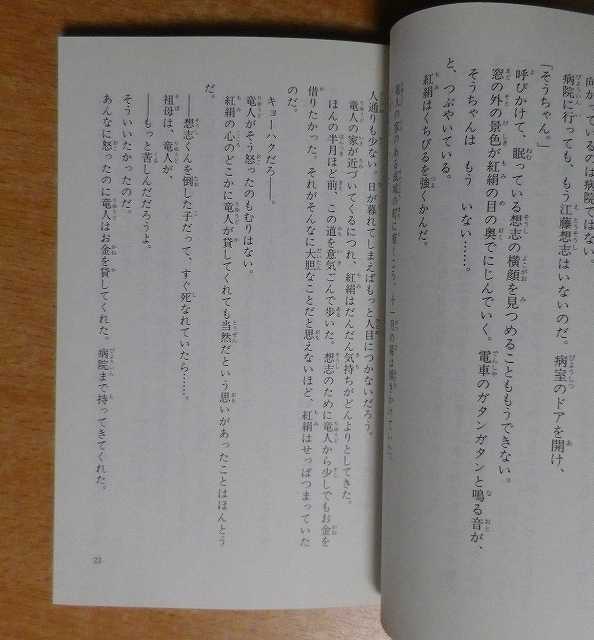 向かっているのは病院ではない。
病院に行っても、もう江藤想志はいないのだ。病室のドアを開け、
「そうちゃん。」
呼びかけて、眠っている想志の横顔を見つめることももうできない。
窓の外の景色が紅絹の目の奥でにじんでいく。電車のガタンガタンと鳴る音が、
そうちゃんは　もう　いない……。
と、つぶやいている。
紅絹はくちびるを強くかんだ。
人通りも少ない。日が暮れてしまえばもっと人目につかないだろう。
竜人の家が近づいてくるにつれ、紅絹はだんだん気持ちがどんよりとしてきた。
ほんの半月ほど前、この道を意気ごんで歩いた。想志のために竜人から少しでもお金を
借りたかった。それがそんなに大胆なことだと思えないほど、紅絹はせっぱつまっていた
のだ。
キョーハクだろ——。
竜人がそう怒ったのもむりはない。
紅絹の心のどこかに竜人が貸してくれても当然だという思いがあったことはほんとう
だ。
——想志くんを倒した子だって、すぐ死なれていたら……。
祖母は、竜人が、
——もっと苦しんだだろうよ。
そういいたかったのだ。
あんなに怒ったのに竜人はお金を貸してくれた。病院まで持ってきてくれた。
23